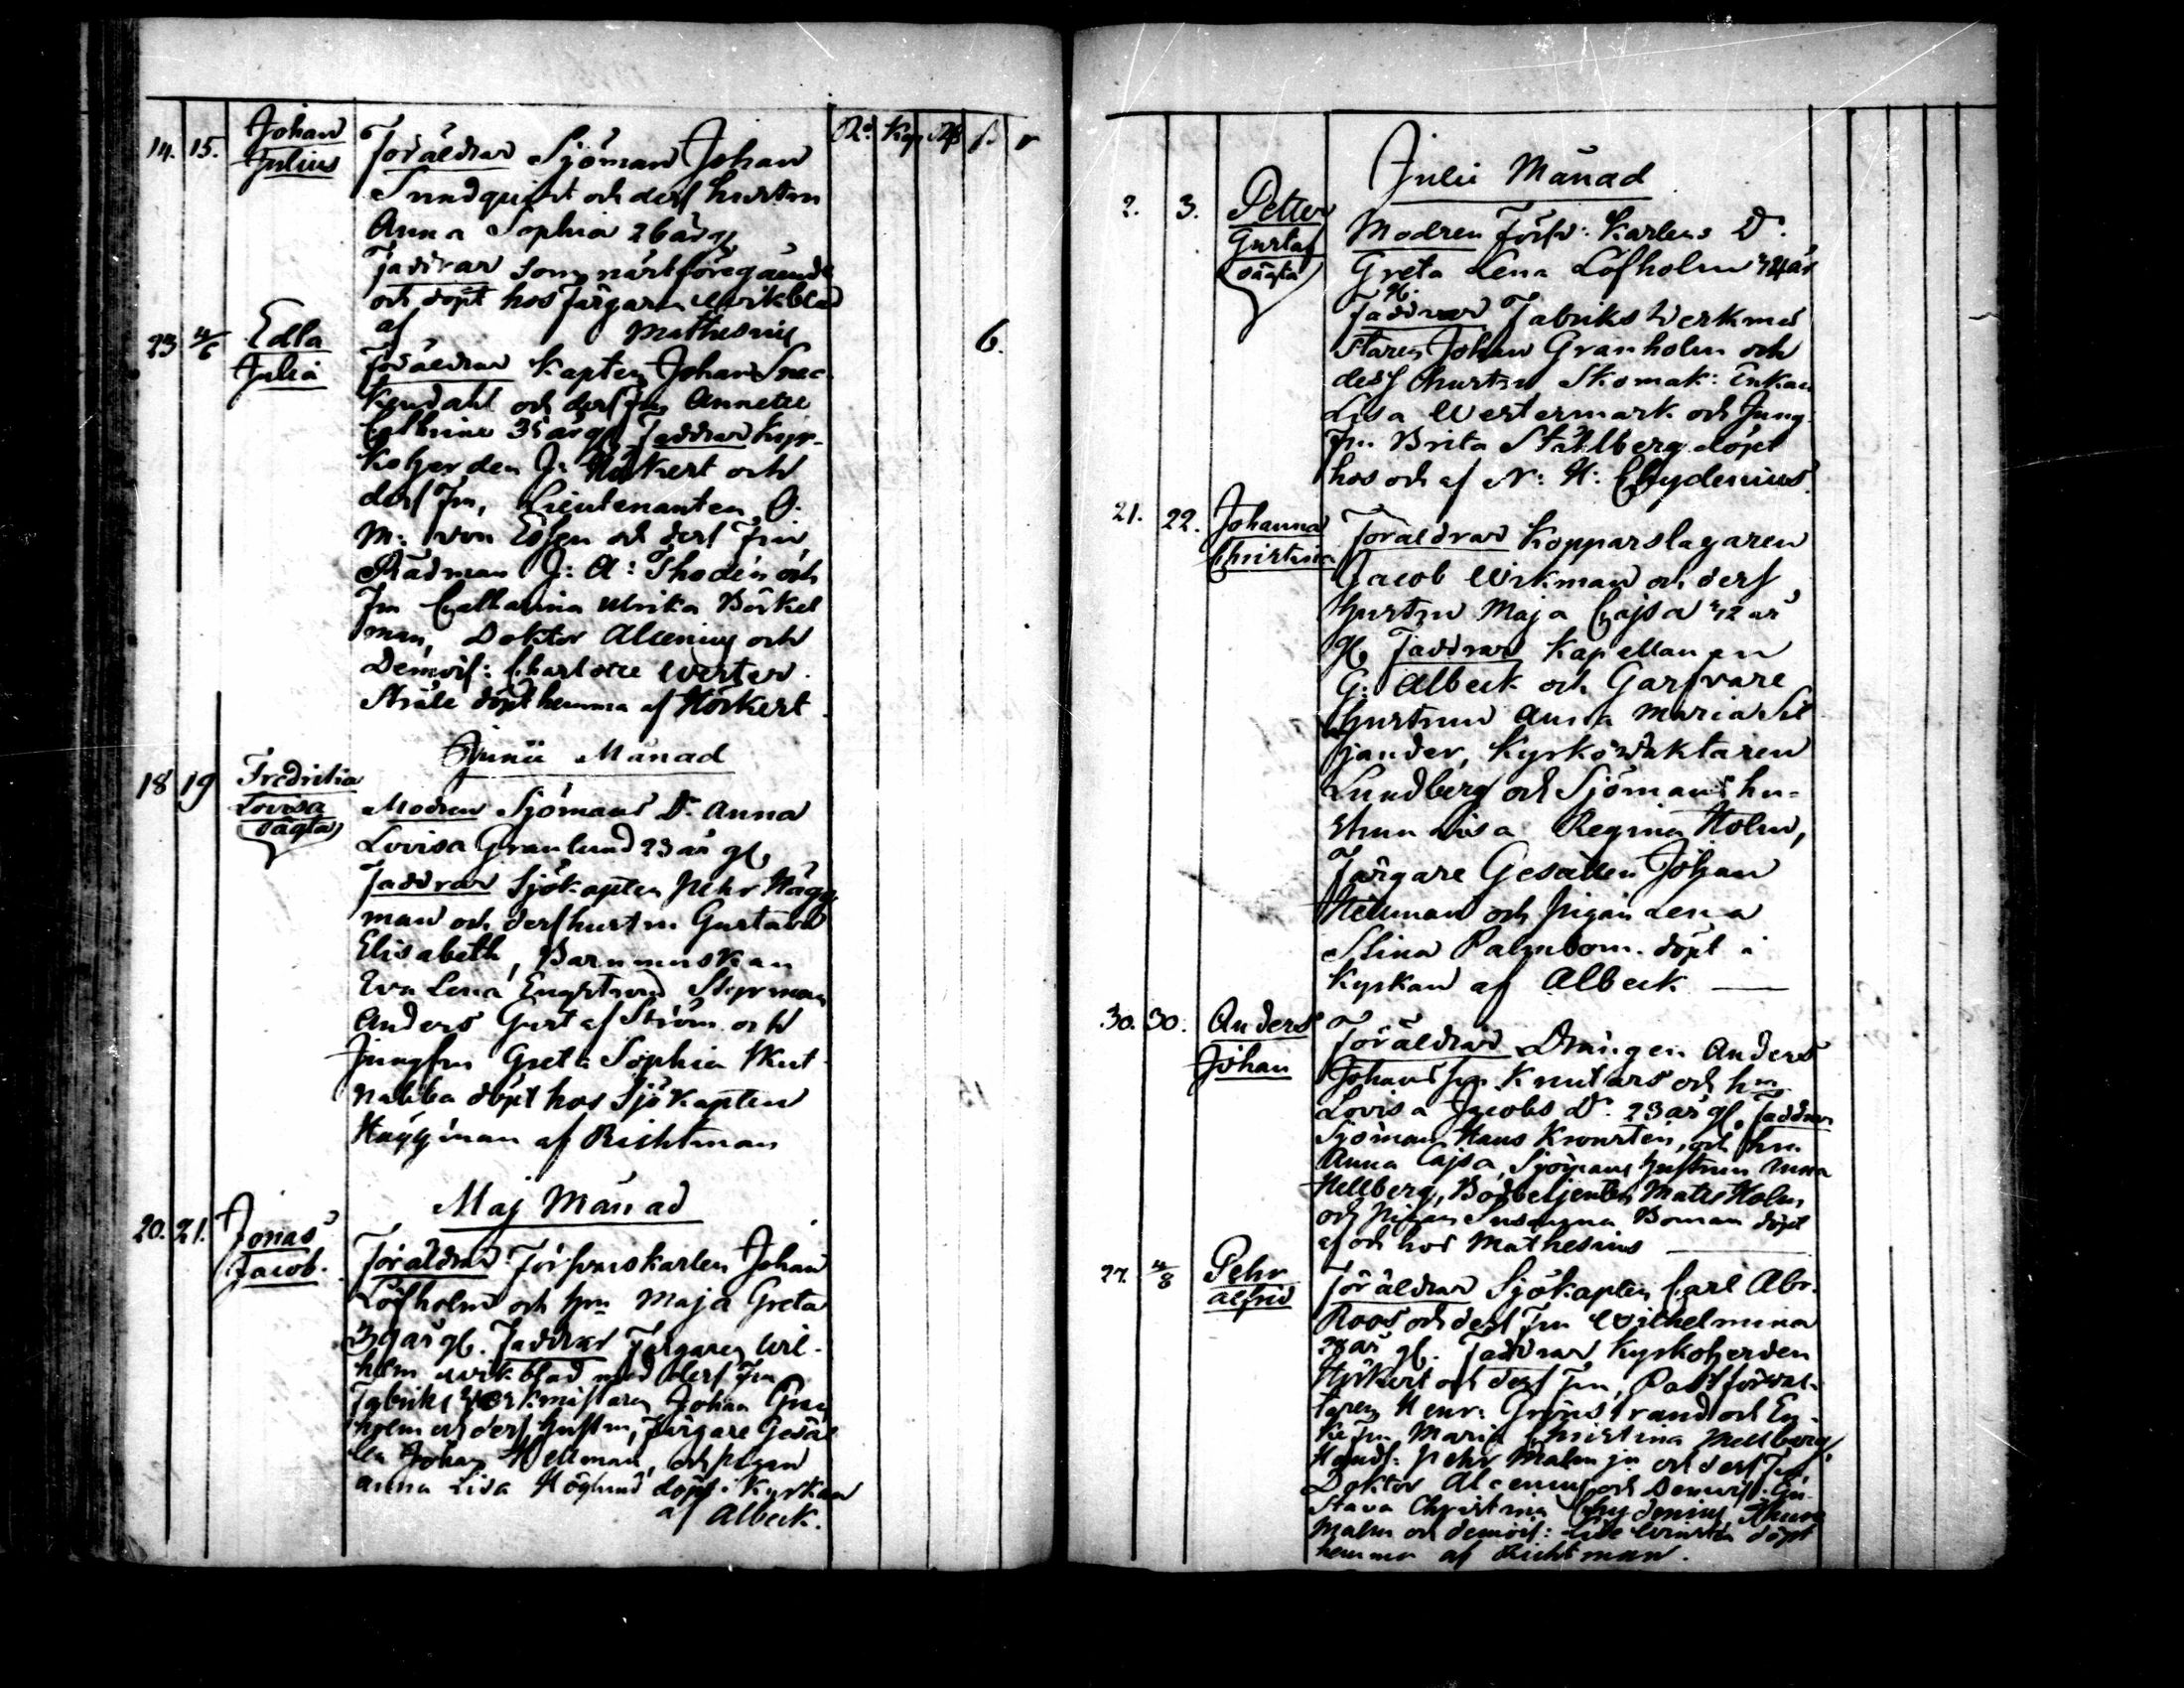 14. 15. Johan Julius
Föräldrar Sjöman Johan
Sundquist och dess hustru
Anna Sophia 26 år gl
Faddrar som närstföregående
och döpt hos Färgaren Wikblad
af Mathesius
23 4/6 Edla Julia 6.
Föräldrar Kapten Johan Snec-
kendahl och dess Fru Annette
Cathrine 35 år gl Faddrar Kyr-
koherden J: Hörkert och
dess Fru, Lieutenanten O.
M: von Essen och dess Fru
Rådman J: A: Thodén och
Fru Catharina Ulrika Börkel
man, Doktor Alcenius och
Demois: Charlotte Wester-
stråle döpt hemma af Hörkert
Junii Månad
18 19 Fredrika Lovisa oägta
Modren Sjömans D: Anna
Lovisa Granlund 23 år gl
Faddrar Sjökapten Pehr Hägg
man och dess hustru Gustava
Elisabeth, Barnmorskan
Eva Lena Engström Styrman
Anders Gustaf Ström och
Jungfru Greta Sophia Skut-
nabba döpt hos Sjökapten
Häggman af Richtman
Maj Månad
20. 21. Jonas Jacob.
Föräldrar Försvarskarlen Johan
Löfholm och hru Maja Greta
39 år gl. Faddrar Färgaren Wil-
helm Wikblad med dess Fru
Fabriks Werkmästaren Johan Gran
holm och dess hustru, Färgare Gesäl
len Johan Hellman, och pigan
Anna Lisa Höglund döpt i Kyrkan
af Albeck.
Julii Månad
2. 3. Petter Gustaf oägta
Modren Försv: Karlens D:
Greta Lena Löfholm 24 år
gl.
Faddrar Fabriks Werkmä
staren Johan Granholm och
dess hustru Skomak: Enkan
Lisa Westermark och Jung
fru Brita Ståhlberg döpt
hos och af N: H: Chydenius.
21. 22. Johanna Christina
Föräldrar Kopparslagaren
Jacob Wikman och dess
hustru Maja Cajsa 42 år
gl Faddrar Kapellanen
G: Albeck och Garfvare
hustrun Anna Maria Sil
jander, Kyrkowäktaren
Lundberg och Sjömans hu-
strun Lisa Regina Holm,
Färgare Gesällen Johan
Hellman och pigan Lena
Stina Palmbom. döpt i
Kyrkan af Albeck
30. 30. Anders Johan
Föräldrar Drängen Anders
Johansson Knutars och hru
Lovisa Jacobs D: 23 år gl. Faddrar
Sjöman Hans Kronsten, och hru
Anna Cajsa, Sjömans hustrun Anna
Hellberg, Bodbetjenten Mats Holm
och pigan Susanna Boman döpt
af och hos Mathesius
27. 4/8 Pehr Alfrid
Föräldrar Sjökapten Carl Abr.
Roos och dess Fru Wilhelmina
år gl. Faddrar Kyrkoherden
Hörkert och dess Fru, Postförval-
taren Henr: Grönstrand och En-
ke Fru Maria Christina Mellberg
Handl: Pehr Malm jr och dess Fru,
Doktor Alcenius och Demois: Gu-
stava Christina Chydenius,
Malm och demois: döpt
hemma af Richtman.